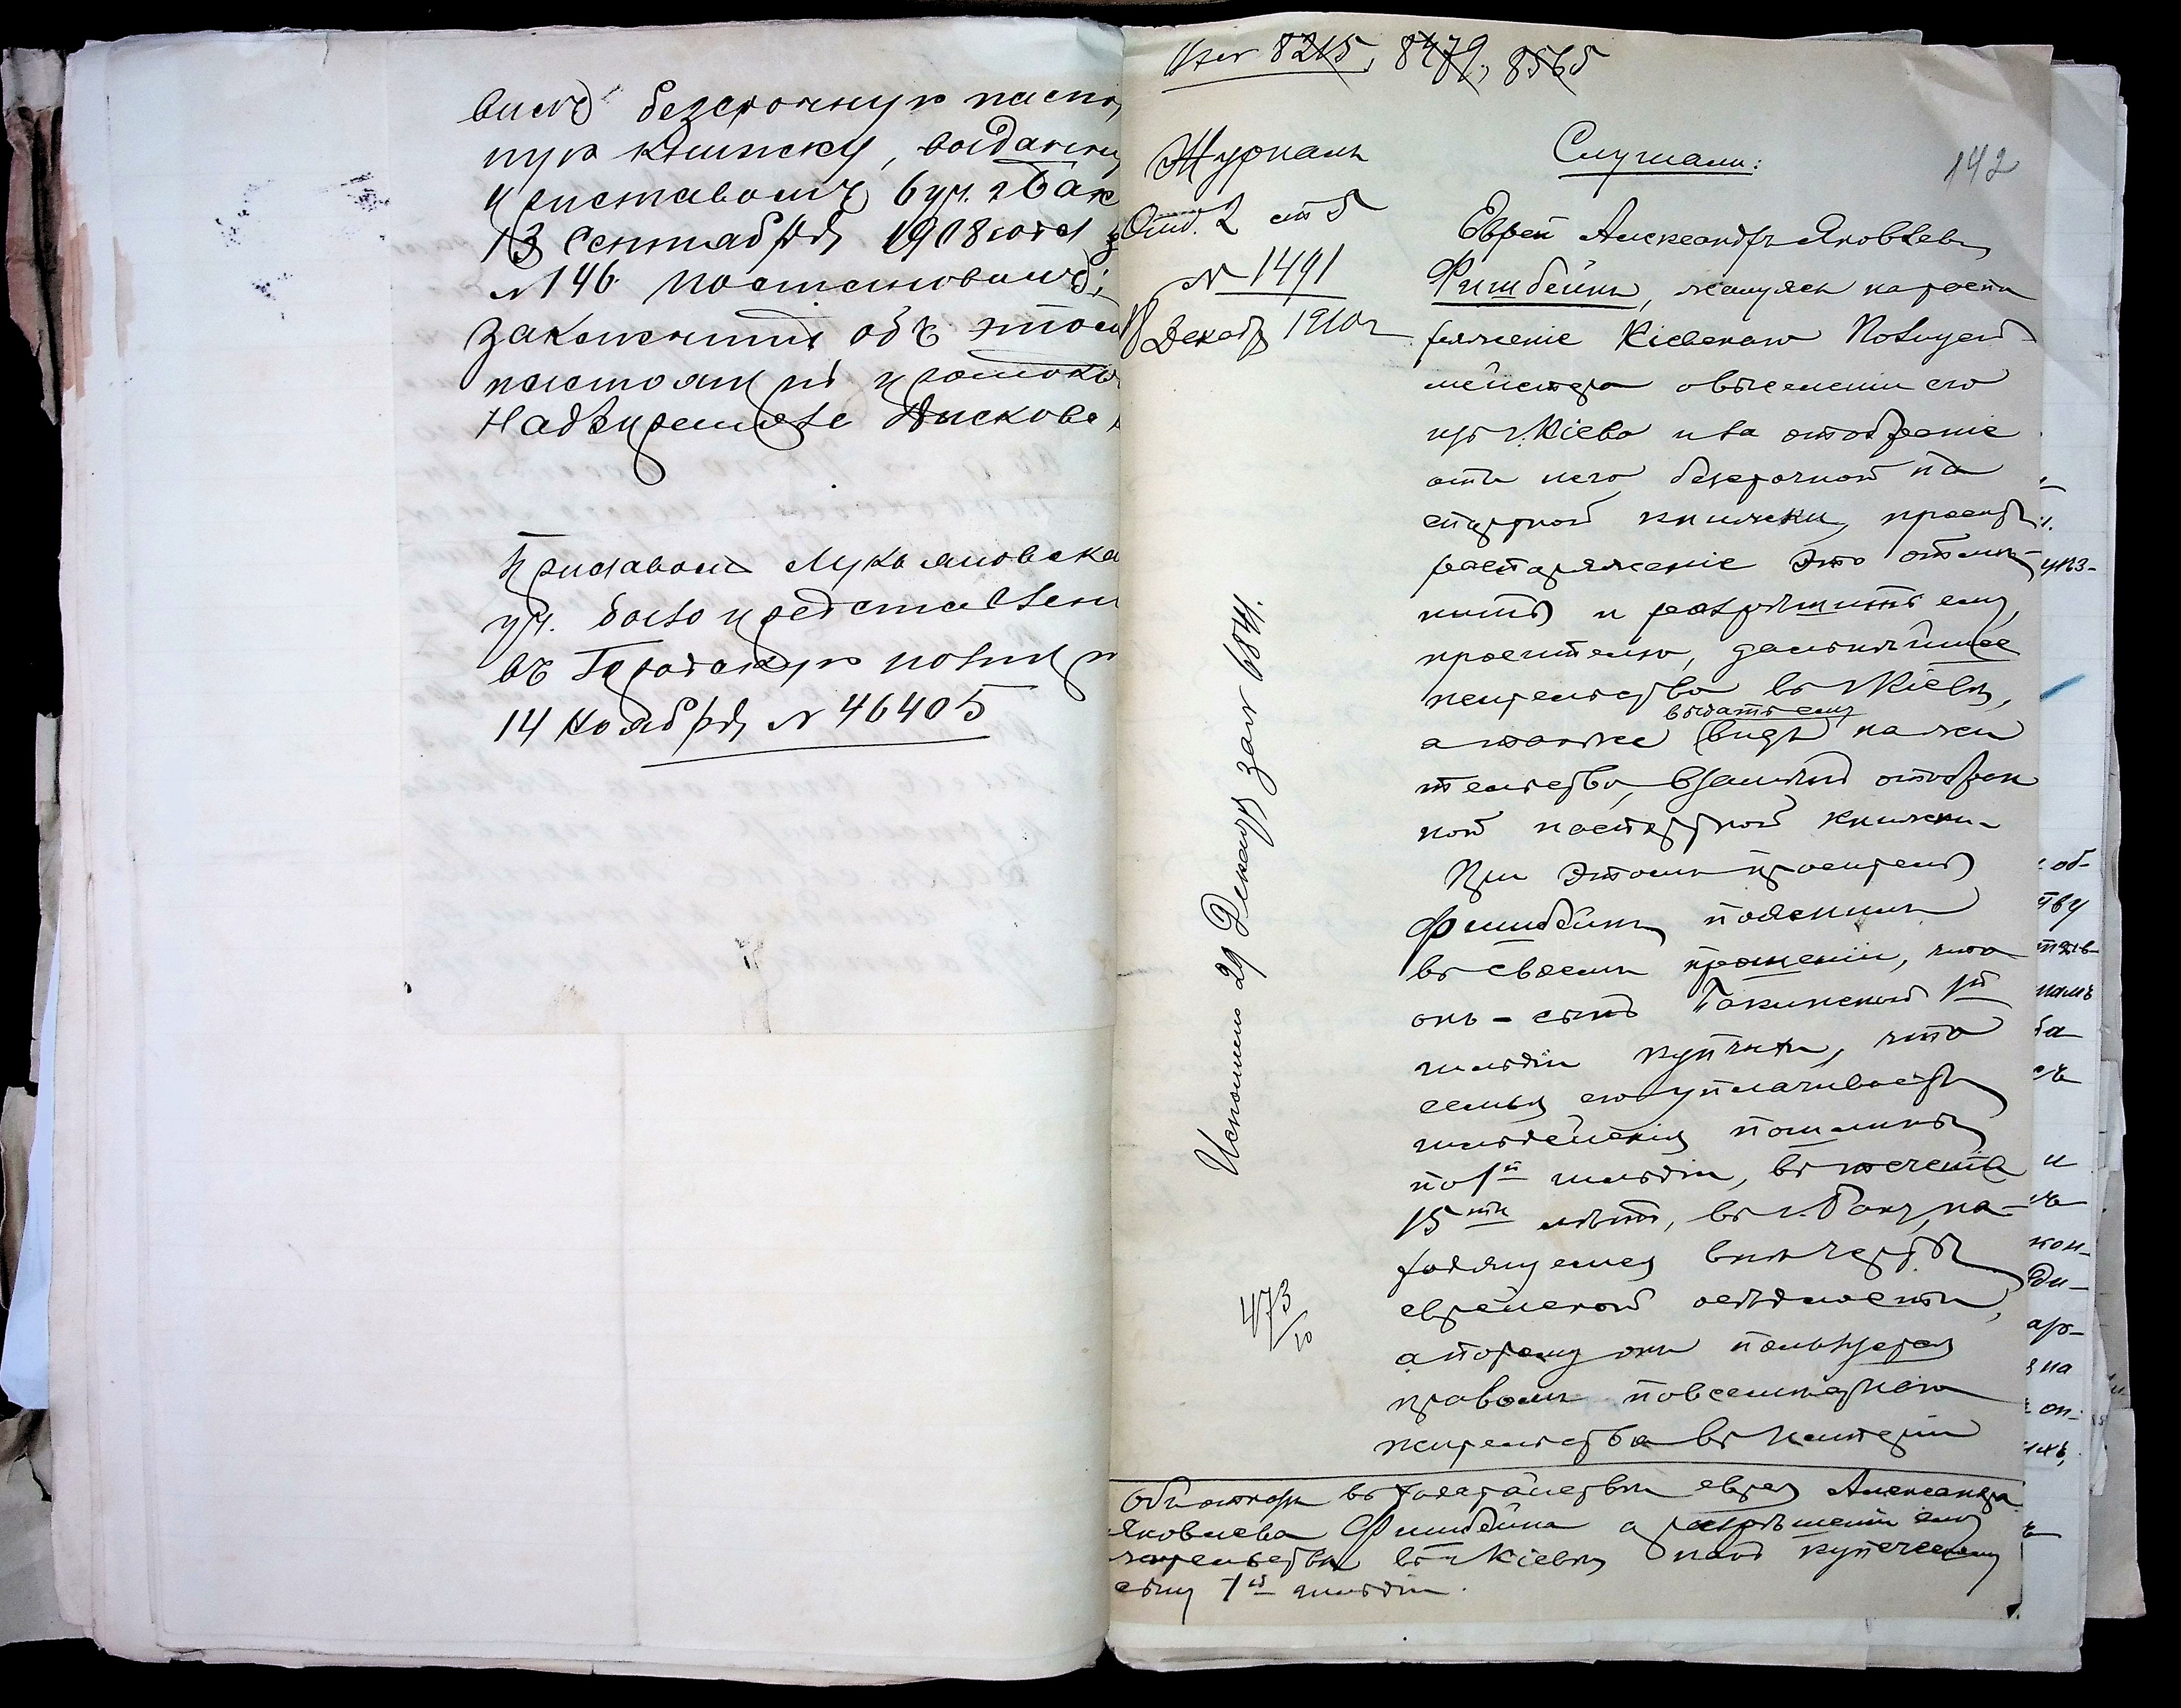 безсрочную паспо
ную книжку, выданну
приставомъ 6 уч. г Бак
13 Сентября 1908 года з
№ 146. Постановилъ:
заключить объ этом
настоящій протоко
Надзиратель
Приставом Лукьяновска
уч. было представлен
въ Городскую полицію
14 ноября № 46405
8215, 8479, 8565
Журналъ
Отд. 2 ст 5
№ 1491
Декабр 1910 г
Исполнено 29 Декабря за № 6841.
473/10
Слушали:
142
Еврей Александръ Яковлевъ
Фишбейнъ, жалуясь на распо
ряженіе Кіевскаго Полицей
мейстера о выселеніи его
изъ г. Кіева и на отобраніе
отъ него безсрочной па
спортной книжки, проситъ
распоряженіе это отмѣ-
нить и разрѣшить ему,
просителю, дальнѣйшее
жительство въ г. Кіевѣ,
а также выдать ему видъ на жи
тельство, взамѣнъ отобран
ной паспортной книжки.
При этомъ проситель
Фишбейнъ пояснилъ
въ своемъ прошеніи, что
онъ – сынъ Бакинской 1й
гильдіи купчихи, что
семья его уплачиваетъ
гильдейскія пошлины
по 1й гильдіи, въ теченіе
15ти лѣтъ, въ г. Баку, на-
ходящемся внѣ черты
еврейской осѣдлости,
а потому онъ пользуется
правомъ повсемѣстнаго
жительства въ Имперіи
Объ отказѣ въ ходатайствѣ еврея Александра
Яковлева Фишбейна о разрѣшеніи ему
жительства въ г. Кіевѣ, какъ купеческому
сыну 1й гильдіи.